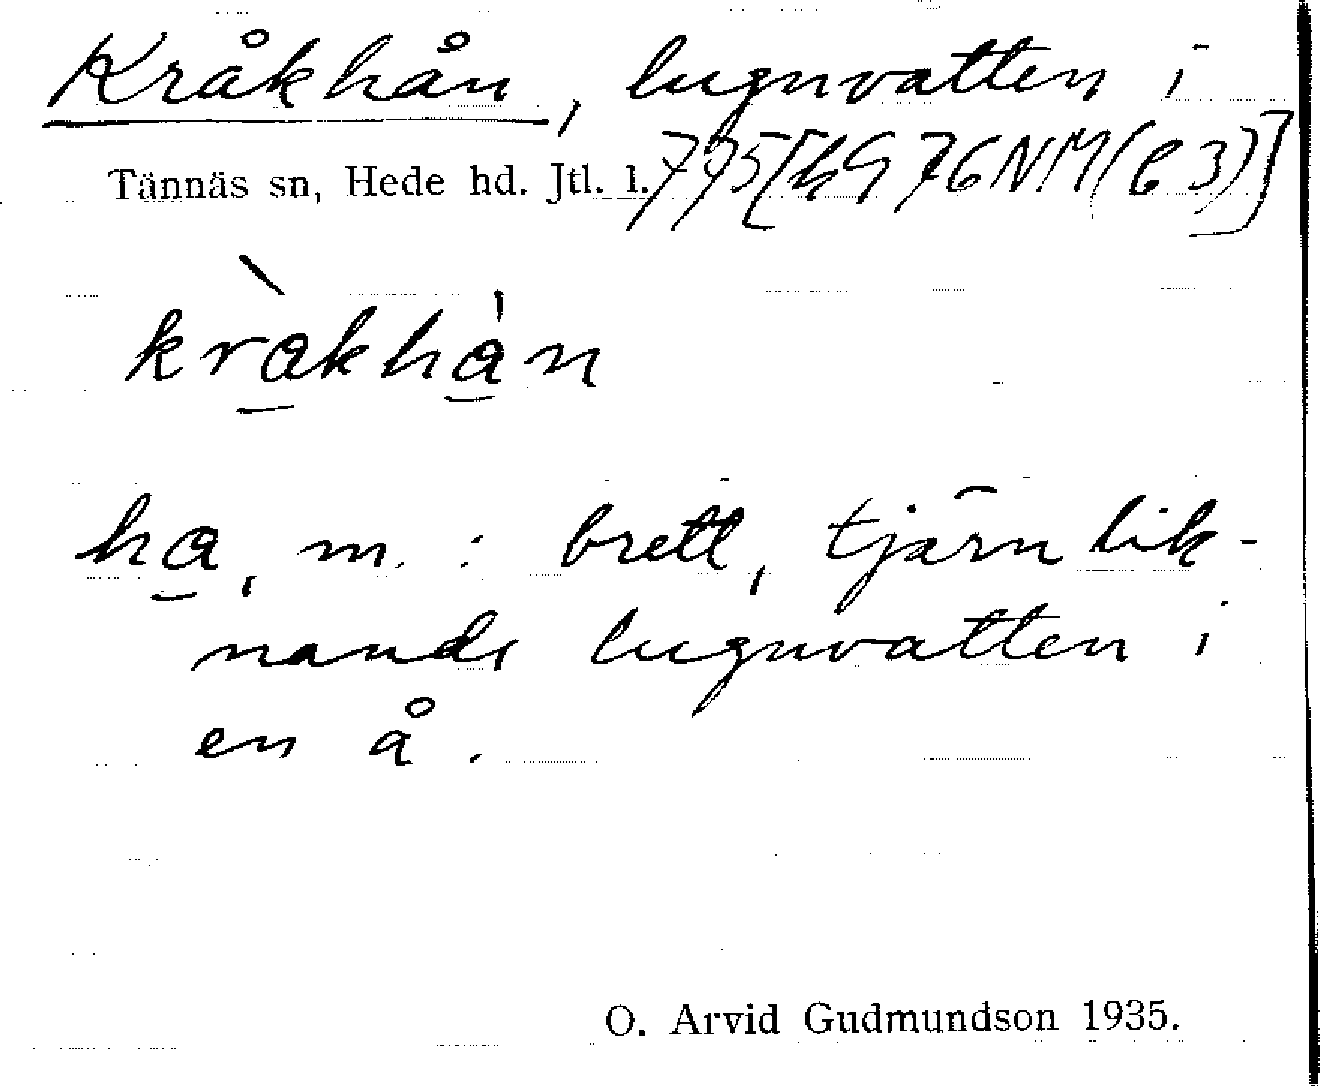 Kråkhån, lugnvatten i
Tännäs sn, Hede hd. Jtl. l. 775 [hG 76 NM (C 3)]
kràkhàn
ha, m. : brett, tjärnlik-
nande lugnvatten i
en å.
O. Arvid Gudmundson 1935.